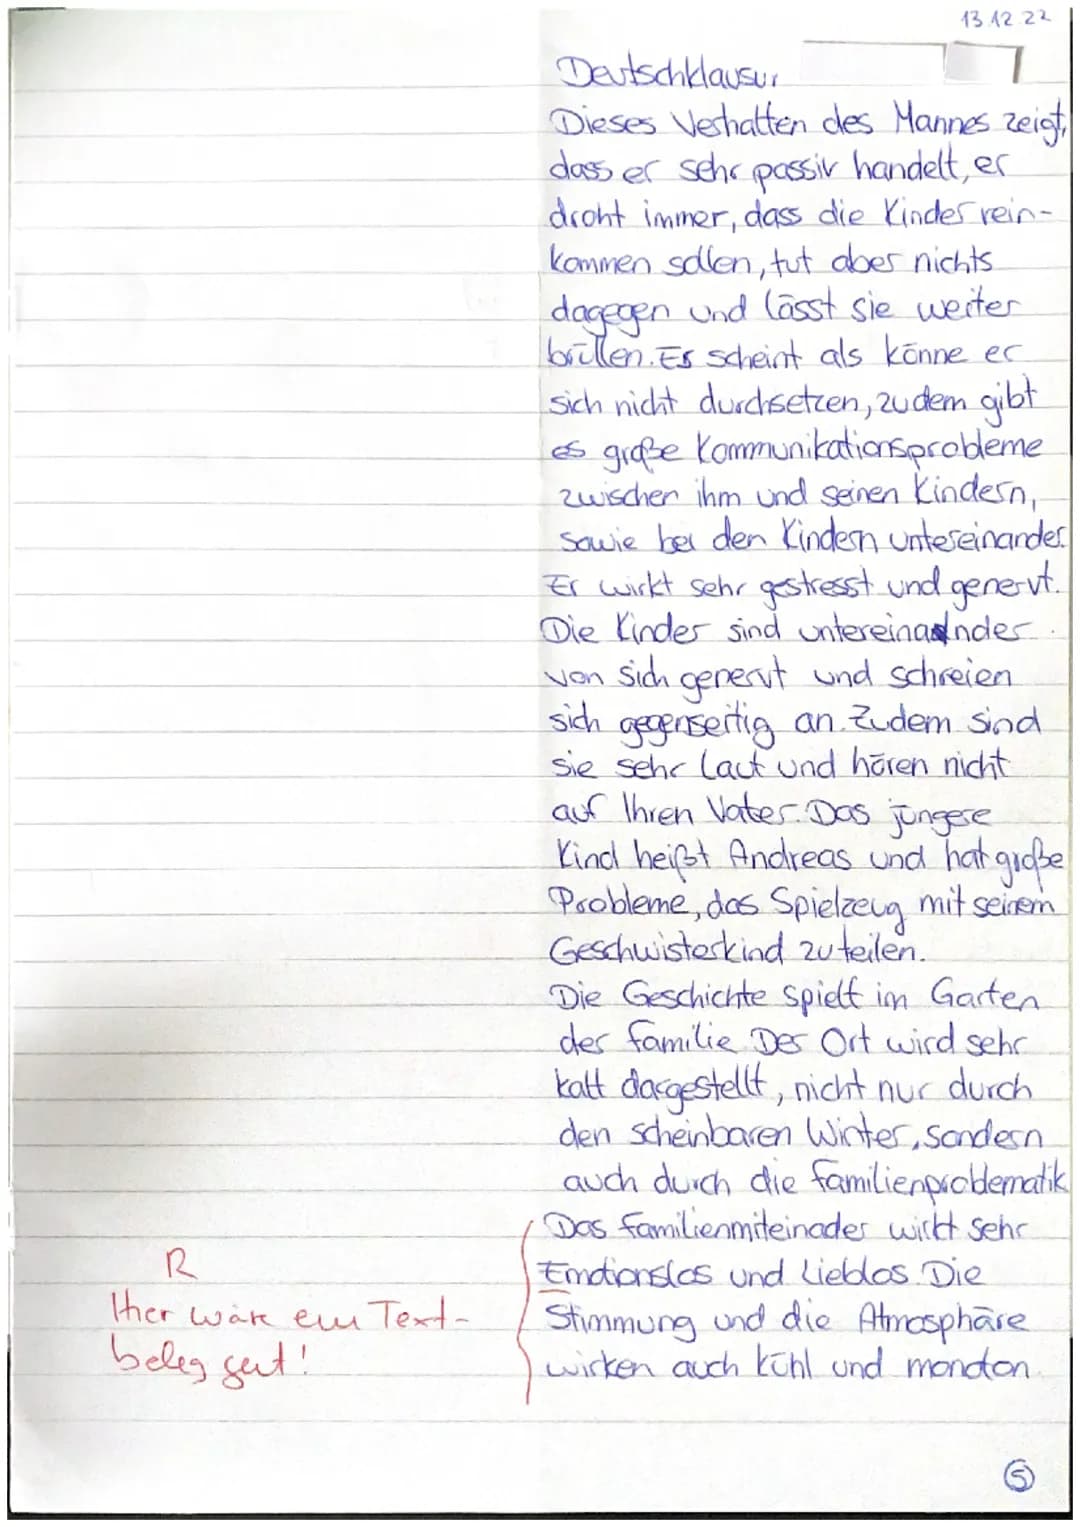 13.12.22
Deutschklausur
Dieses Verhalten des Mannes zeigt,
dass er sehr passiv handelt, er
droht immer, dass die Kinder rein-
kommen sollen, tut aber nichts
dagegen und lässt sie weiter
brüllen. Es scheint als könne er
sich nicht durchsetzen, zudem gibt
es große Kommunikationsprobleme
zwischen ihm und seinen Kindern,
sowie bei den Kindern untereinander.
Er wirkt sehr gestresst und genervt.
Die Kinder sind untereinander
von sich genervt und schreien
sich gegenseitig an. Zudem sind
sie sehr laut und hören nicht
auf Ihren Vater. Das jüngere
Kind heißt Andreas und hat große
Probleme, das Spielzeug mit seinem
Geschwisterkind zu teilen.
Die Geschichte spielt im Garten
der Familie. Der Ort wird sehr
kalt dargestellt, nicht nur durch
den scheinbaren Winter, sondern
auch durch die Familienproblematik
Das Familienmiteinader wirkt sehr
Emotionslos und Lieblos. Die
Stimmung und die Atmosphäre
wirken auch kühl und monoton.
R
Hier wäre ein Text-
beleg gut!
5